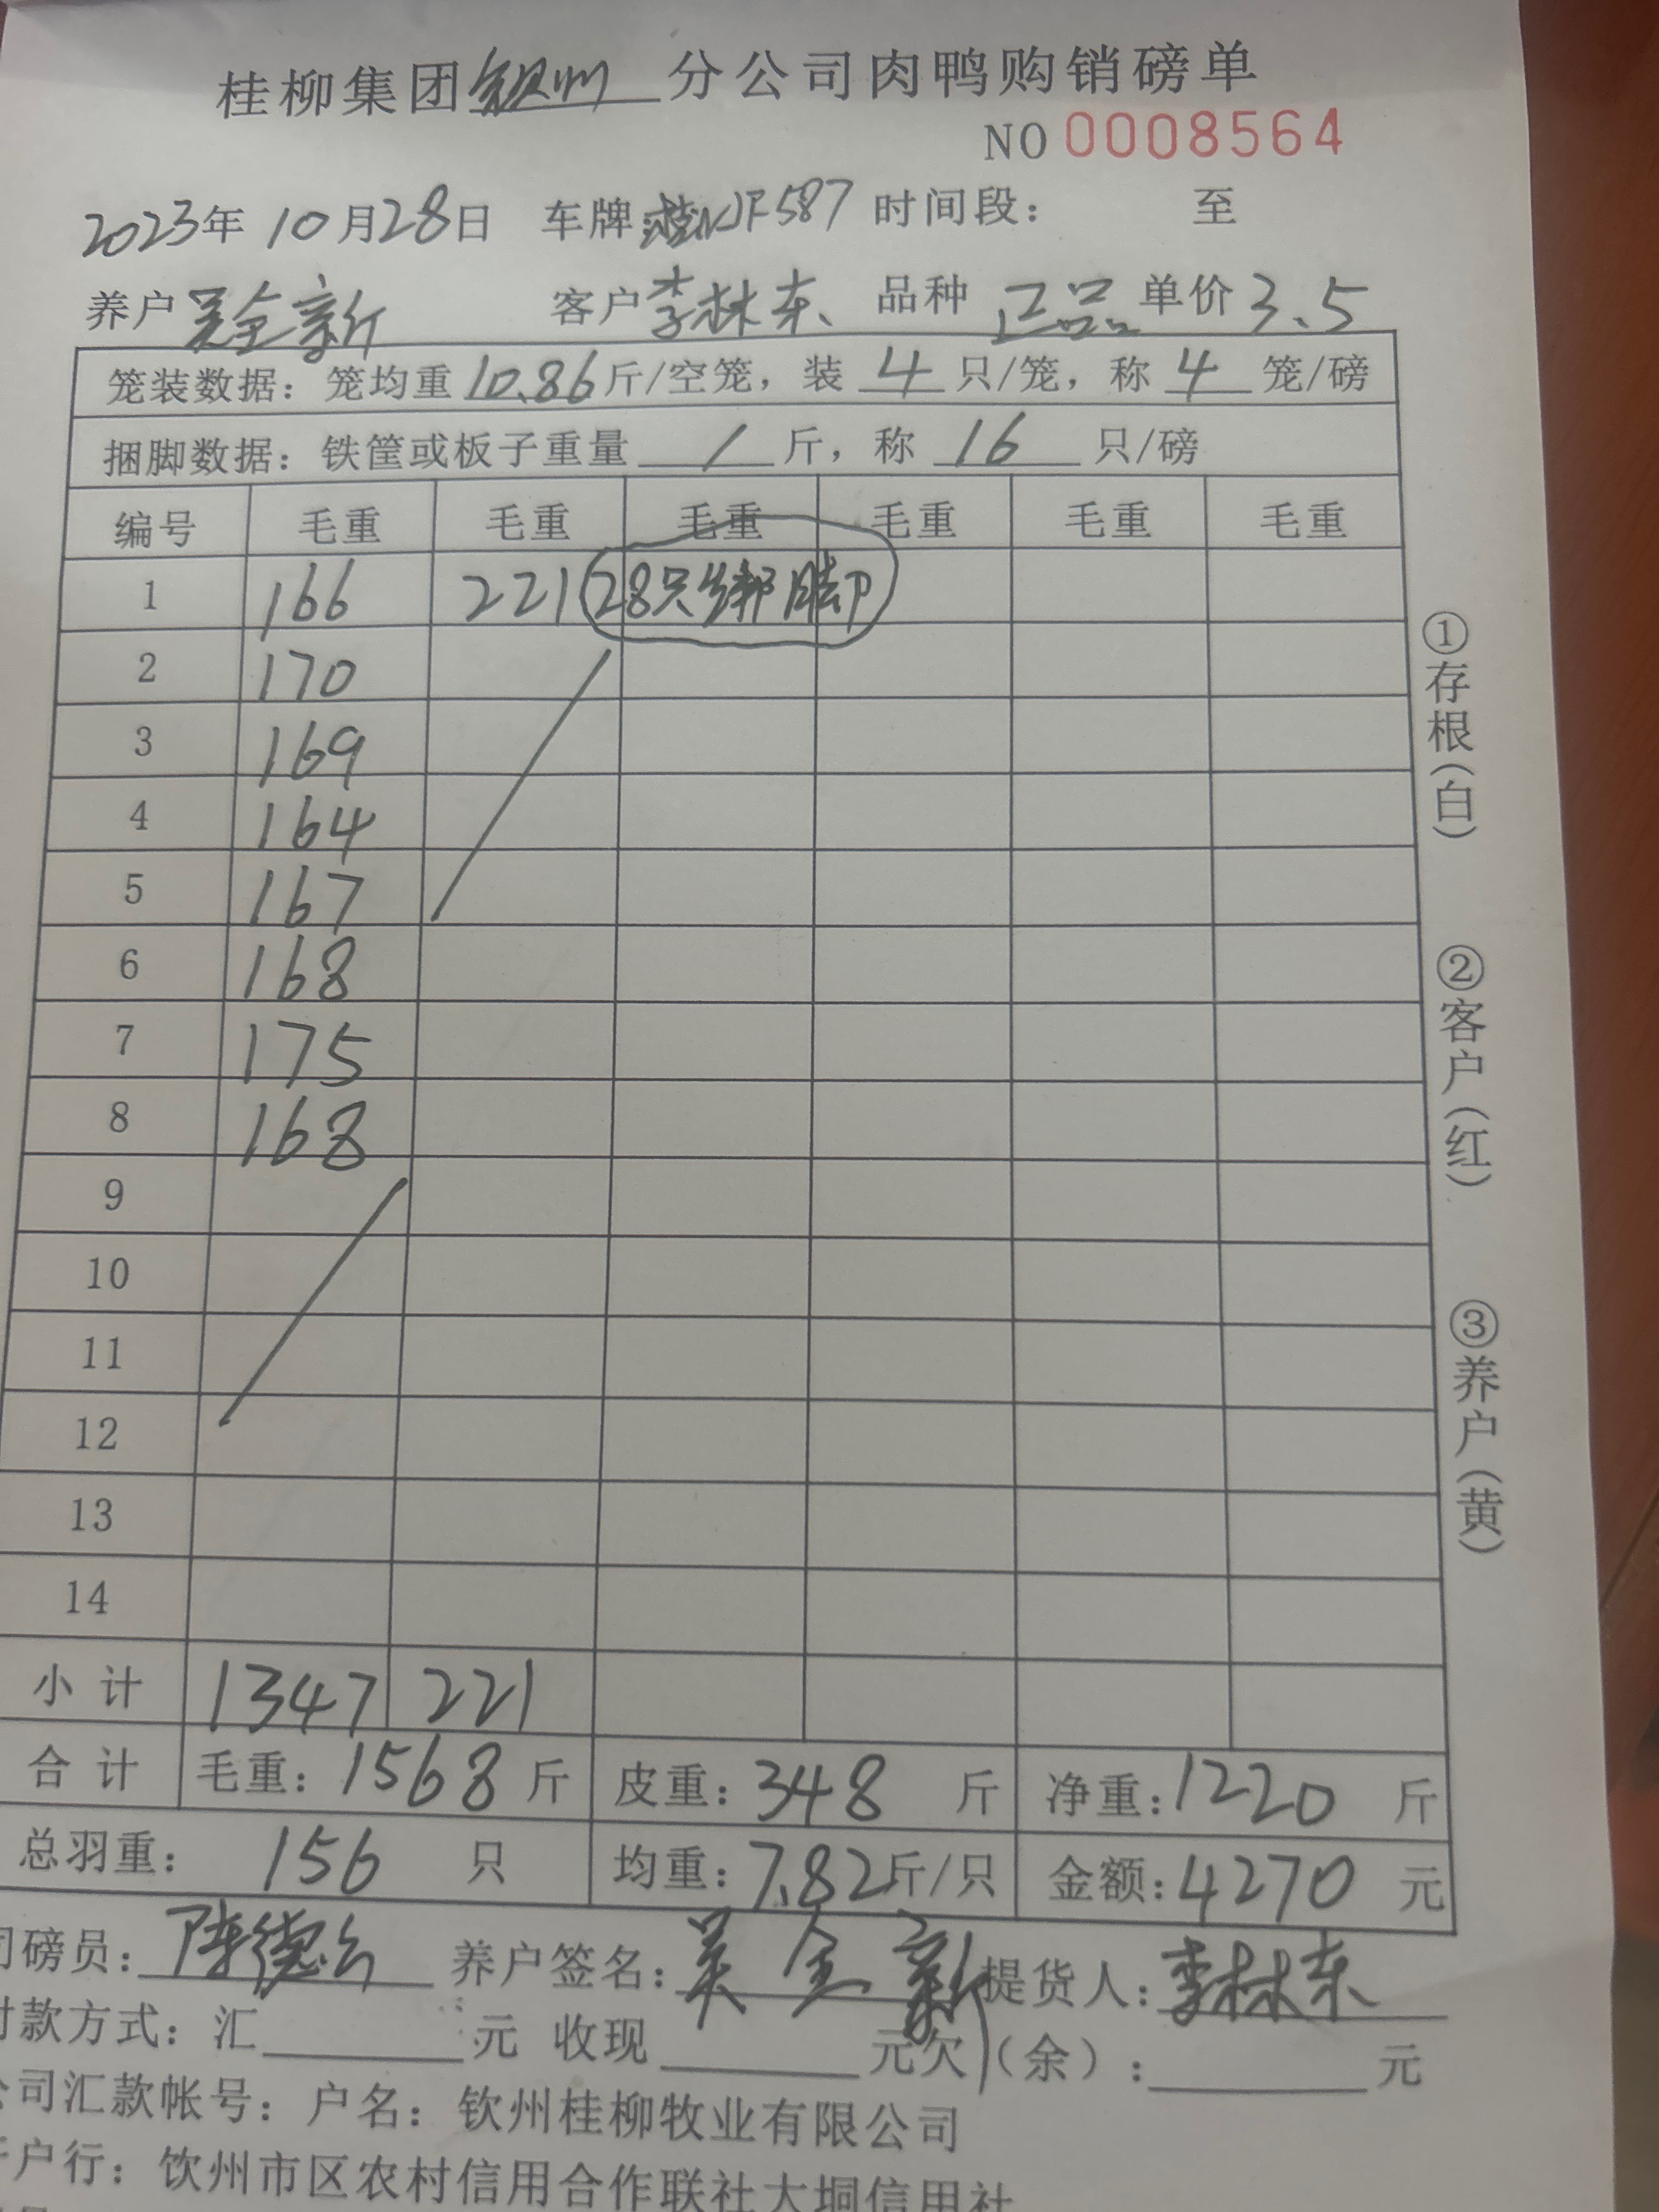 桂柳集团钦州分公司肉鸭购销磅单
NO 0008564
2023年 10月28日 车牌:桂NJF587 时间段: 至
养户 吴全新 客户 李林东 品种 正品 单价 3.5
笼装数据：笼均重 10.86 斤/空笼，装 4 只/笼，称 4 笼/磅
捆脚数据：铁筐或板子重量 / 斤，称 16 只/磅
编号 毛重 毛重 毛重 毛重 毛重 毛重
1 166 221 28只绑脚
2 170
3 169
4 164
5 167
6 168
7 175
8 168
9
10
11
12
13
14
小计 1347 221
合计 毛重：1568 斤 皮重：348 斤 净重：1220 斤
总羽重：156 只 均重：7.82斤/只 金额：4270 元
司磅员： 养户签名：吴全新 提货人：李林东
付款方式：汇 元 收现 元欠（余）： 元
公司汇款帐号：户名：钦州桂柳牧业有限公司
开户行：钦州市区农村信用合作联社大垌信用社
①存根（白）
②客户（红）
③养户（黄）